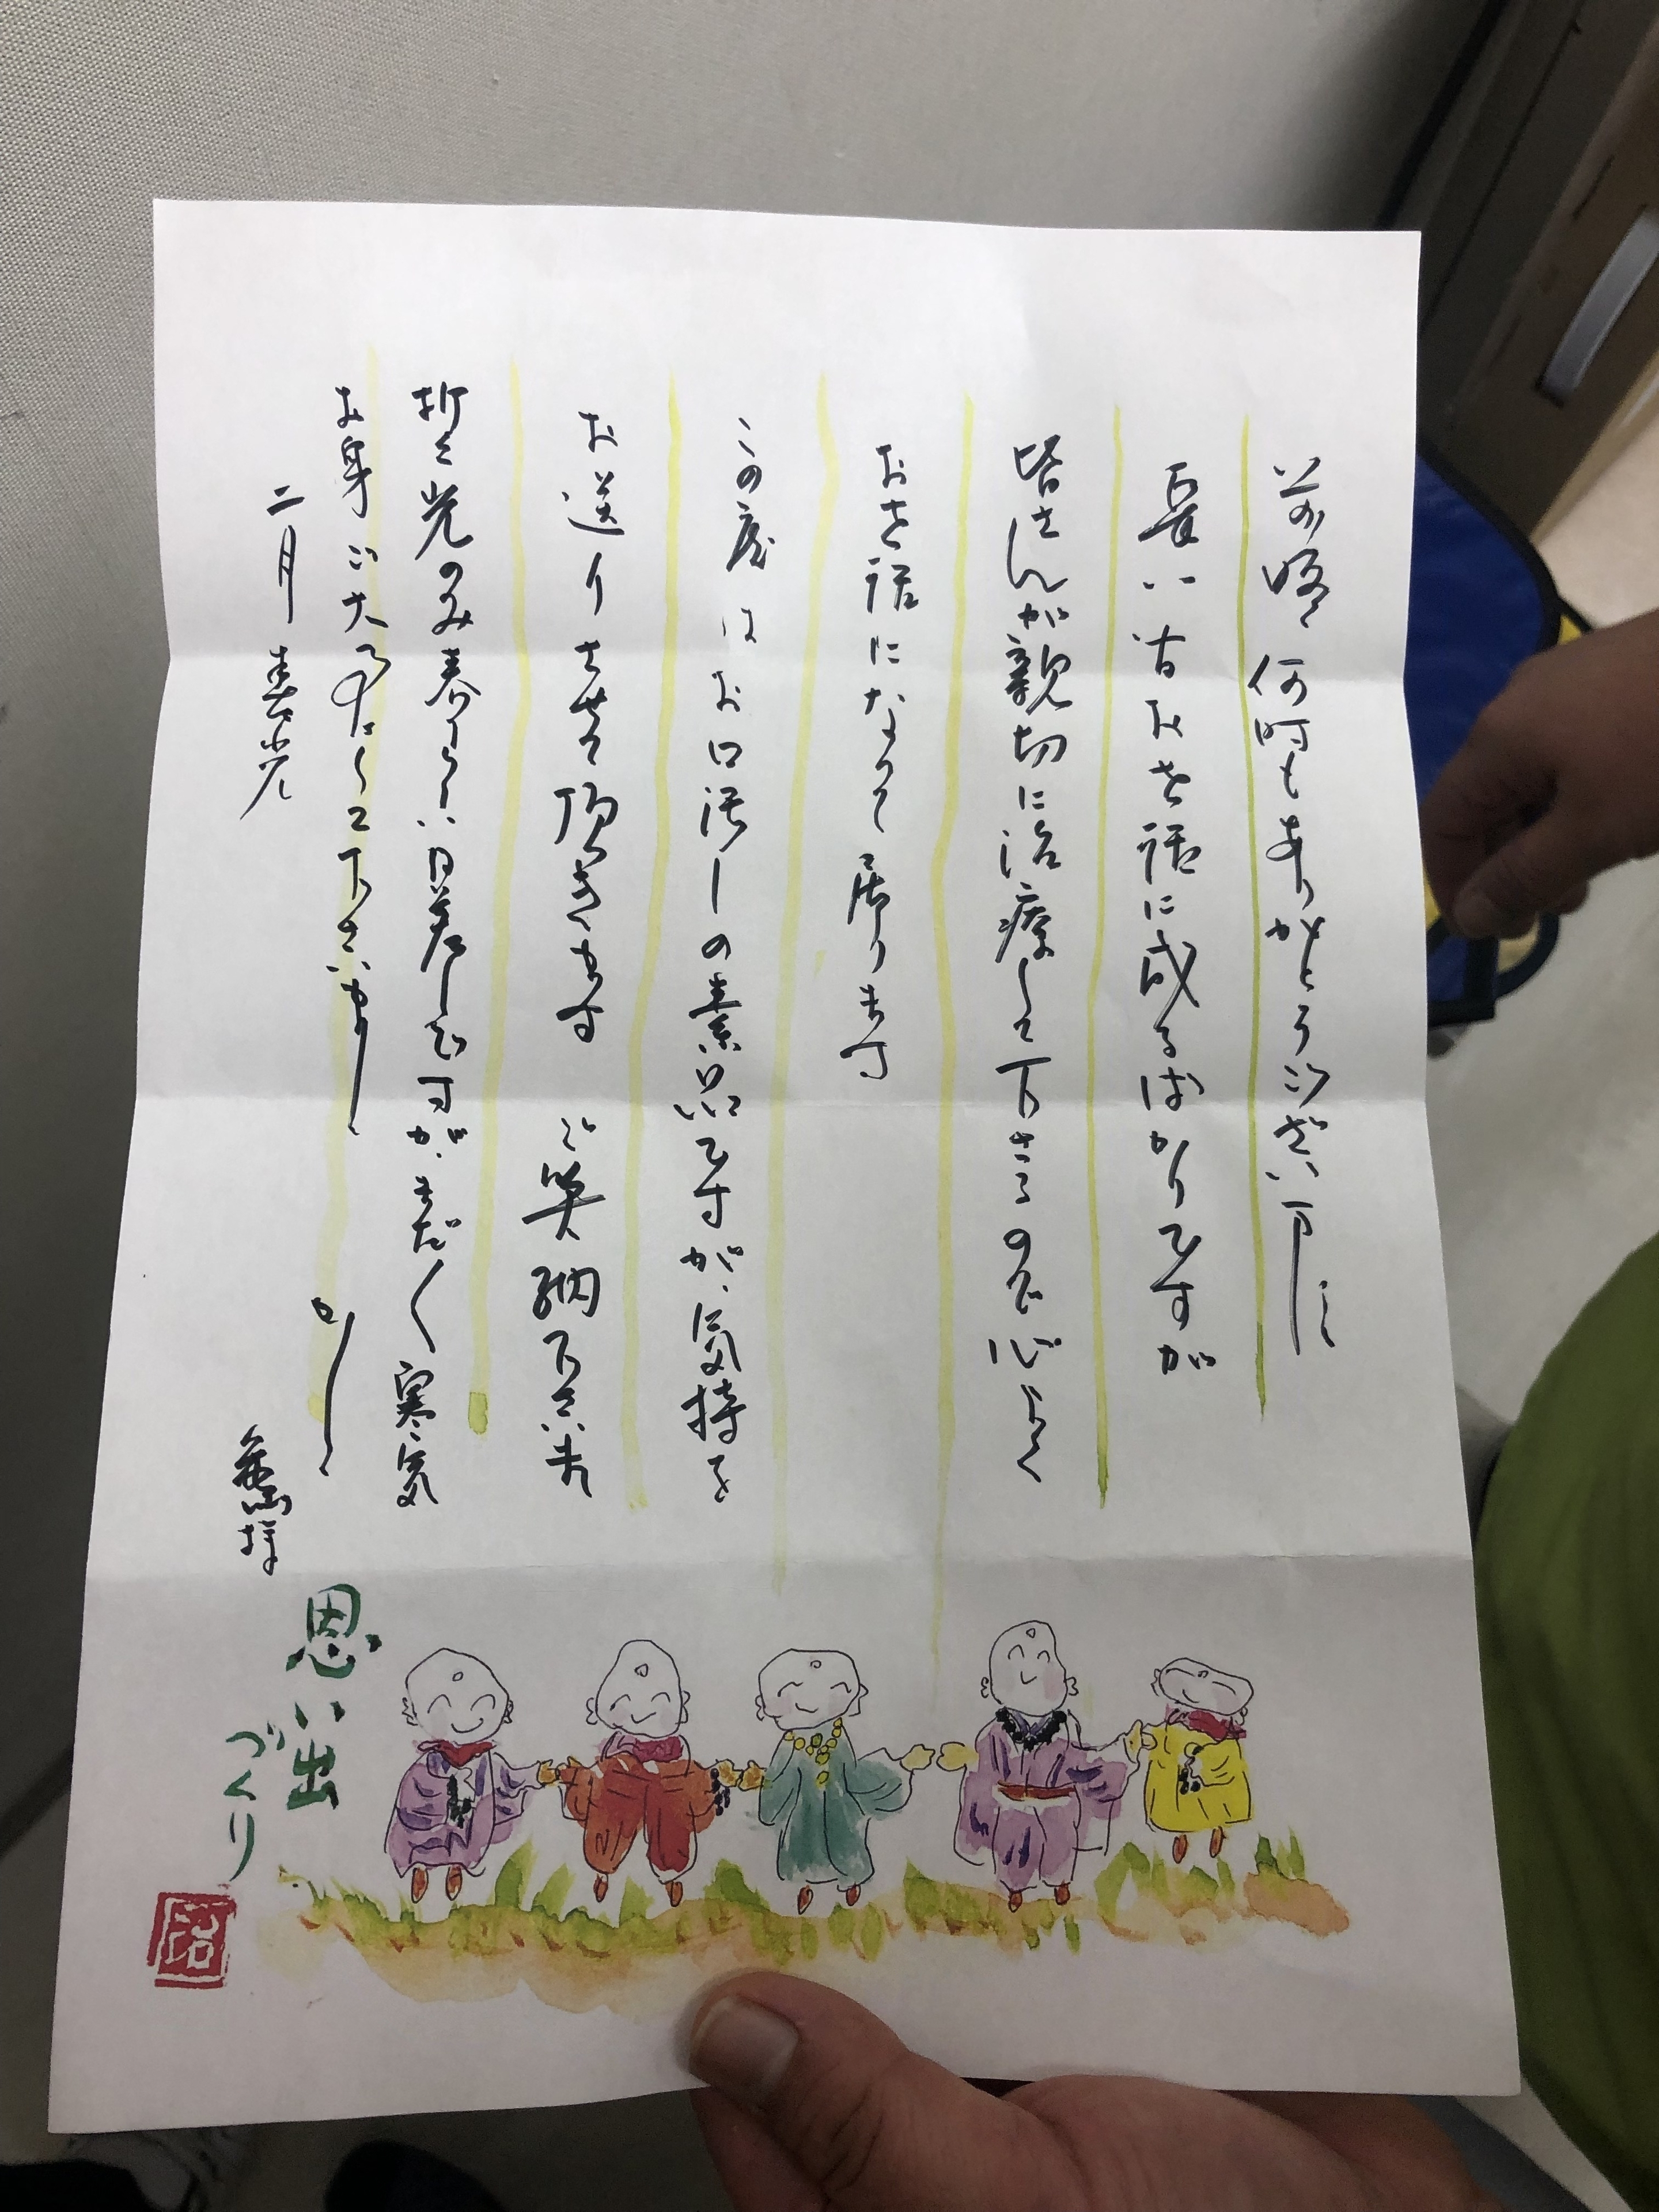 前略 何時もありがとうございます
長い方お世話に成るばかりですが
皆さんが親切に治療して下さるので心よく
お世話になって居ります
この度はお口汚しの素品ですが、気持を
お送りさせて頂きます ご笑納下さいませ
折々光のみ春らしい日差しですが、まだ〱寒気
お身ご大事になさって下さいませ
かしこ
二月
様
思い出
づくり